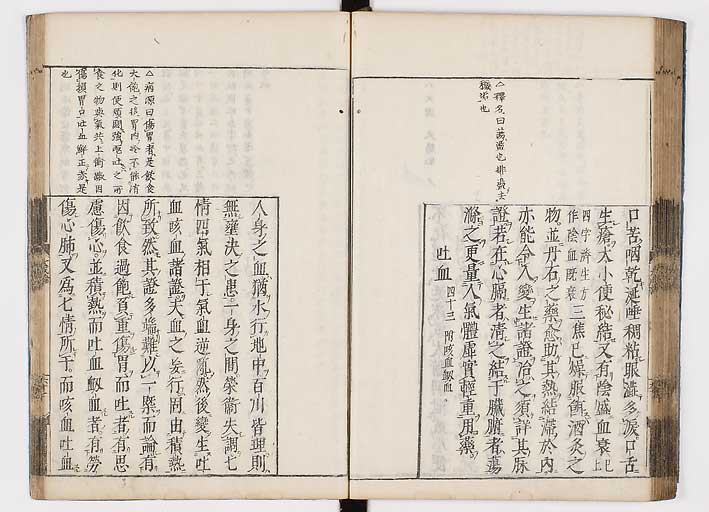 △釋名曰蒸[
口苦咽乾涎唾稠粘眼澁多淚口舌
生瘡大小便秘結又有陰盛血衰已上
四字濟生方
作陰血既衰
三焦已燥服餌酒灸之
物並丹石之藥愈助其熱結滯於內
亦能令人變生諸證治之須詳其脉
證若在心膈者清之結于臟腑者蕩
滌之更量人氣體虛實輕重用藥
吐血四十三 附咳血衂血
△病源曰傷胃者是飲食
大飽之後胃內冷不能消
化則便煩悶強嘔吐之所
食之物與氣共上衝蹙因
傷損胃口吐血鮮正赤是
也
人身之血猶水行地中百川皆理則
無壅決之患一身之間榮衛失調七
情四氣相于氣血逆亂然後變生吐
血咳血諸證夫血之妄行罔由積熱
所致然其證多端難以一槩而論有
因飲食過飽負重傷胃而吐者有思
慮傷心並積熱而吐血衂血者有勞
傷心肺又為七情所干而咳血吐血